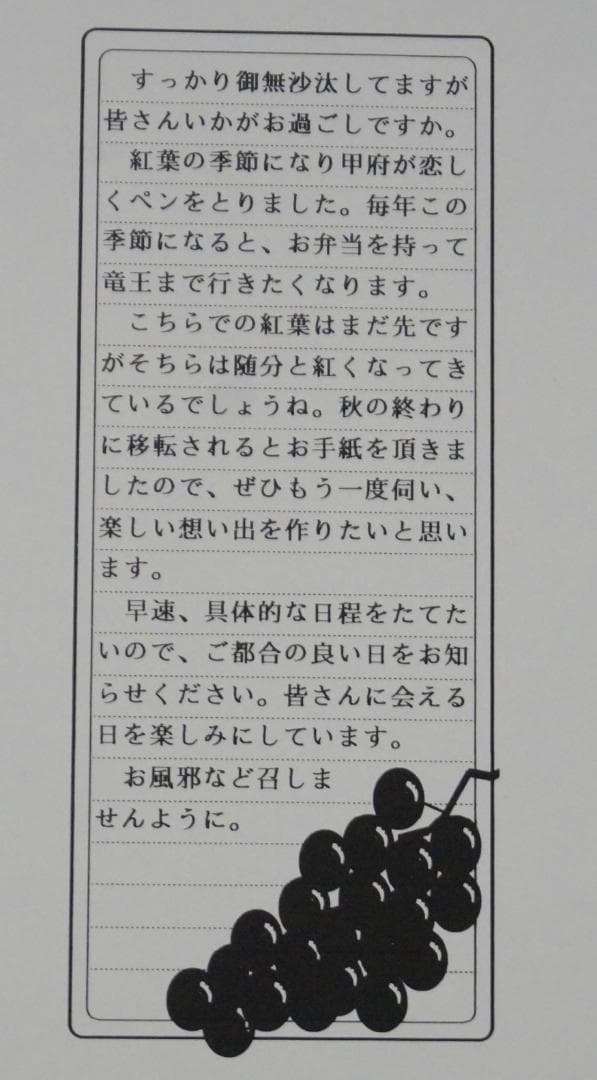 すっかり御無沙汰してますが
皆さんいかがお過ごしですか。
紅葉の季節になり甲府が恋し
くペンをとりました。毎年この
季節になると、お弁当を持って
竜王まで行きたくなります。
こちらでの紅葉はまだ先です
がそちらは随分と紅くなってき
ているでしょうね。秋の終わり
に移転されるとお手紙を頂きま
したので、ぜひもう一度伺い、
楽しい想い出を作りたいと思い
ます。
早速、具体的な日程をたてた
いので、ご都合の良い日をお知
らせください。皆さんに会える
日を楽しみにしています。
お風邪など召しま
せんように。